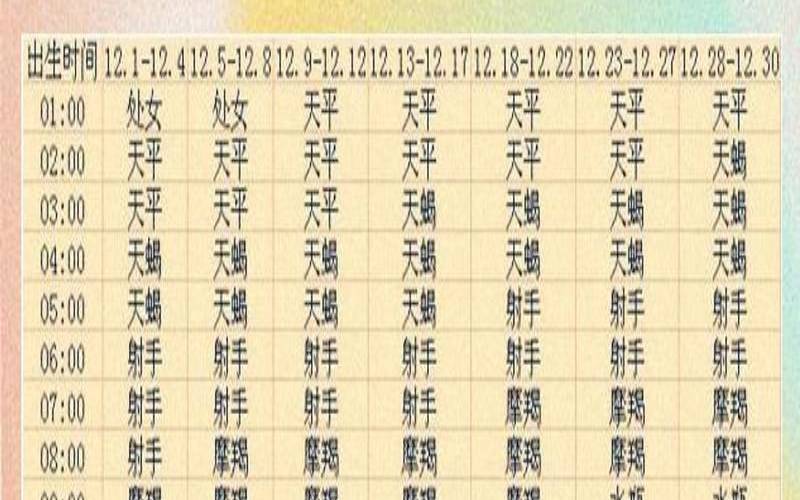 出生时间 12.1-12.4 12.5-12.8 12.9-12.12 12.13-12.17 12.18-12.22 12.23-12.27 12.28-12.30
01:00 处女 处女 天平 天平 天平 天平 天平
02:00 天平 天平 天平 天平 天平 天平 天蝎
03:00 天平 天平 天平 天蝎 天蝎 天蝎 天蝎
04:00 天蝎 天蝎 天蝎 天蝎 天蝎 天蝎 天蝎
05:00 天蝎 天蝎 天蝎 天蝎 射手 射手 射手
06:00 射手 射手 射手 射手 射手 射手 射手
07:00 射手 射手 射手 射手 摩羯 摩羯 摩羯
08:00 射手 摩羯 摩羯 摩羯 摩羯 摩羯 摩羯